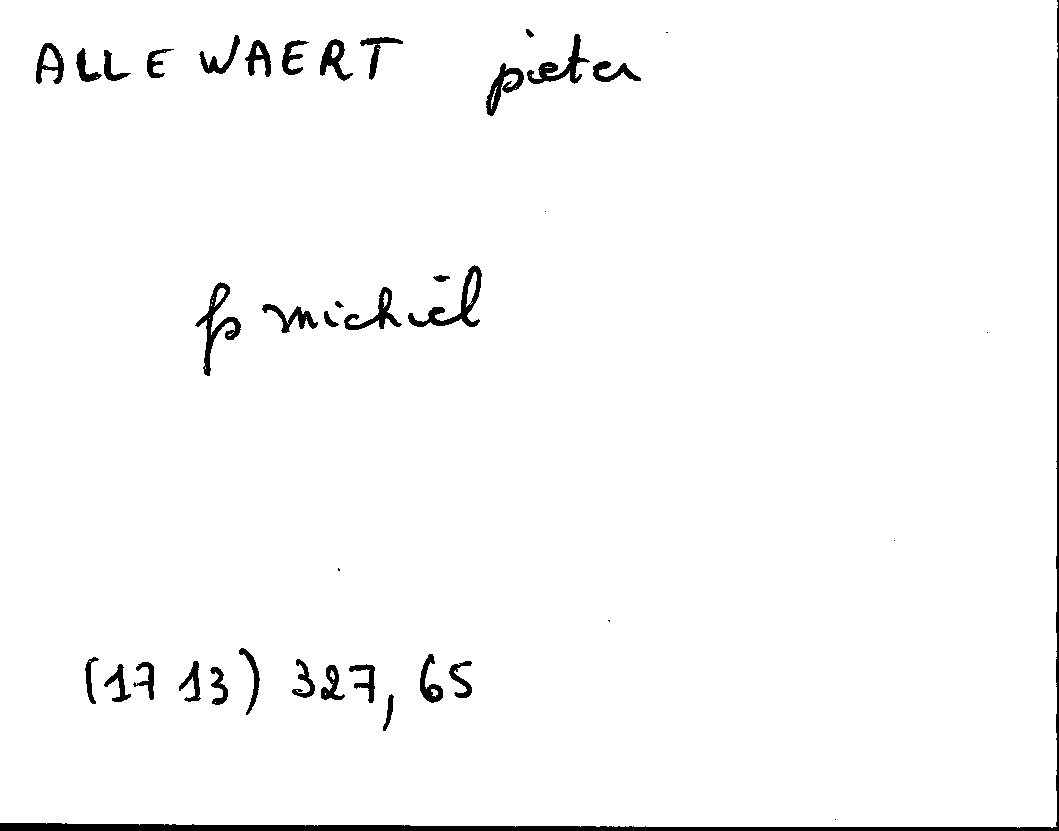 ALLEWAERT pieter
fs michiel
(1713) 327, 65